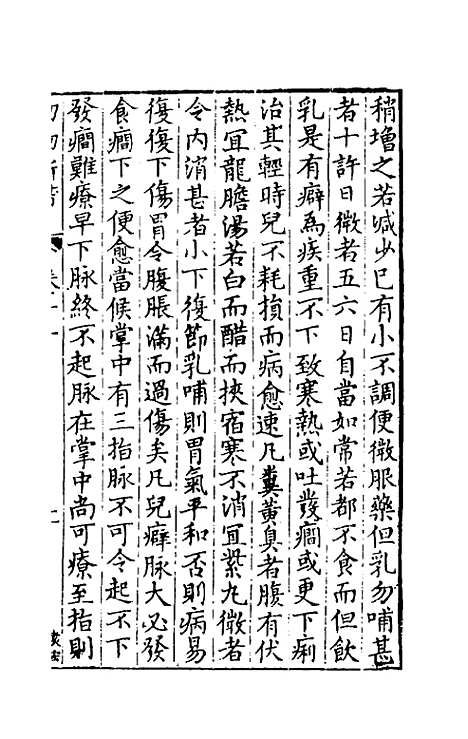 稍增之若减少巳有小不調便微服藥但乳勿哺甚
者十許日微者五六日自當如常若都不食而但飲
乳是有癖為疾重不下致寒熱或吐發癎或更下痢
治其輕時兒不耗損而病愈速凡糞黃臭者腹有伏
熱宜龍膽湯若白而醋而挾宿寒不消宜紫丸微者
令内消甚者小下復節乳哺則胃氣平和否則病易
復復下傷胃令腹脹滿而過傷矣凡兒癖脉大必發
食癎下之便愈當候掌中有三指脉不可令起不下
發癎難療早下脉終不起脉在掌中尚可療至指則